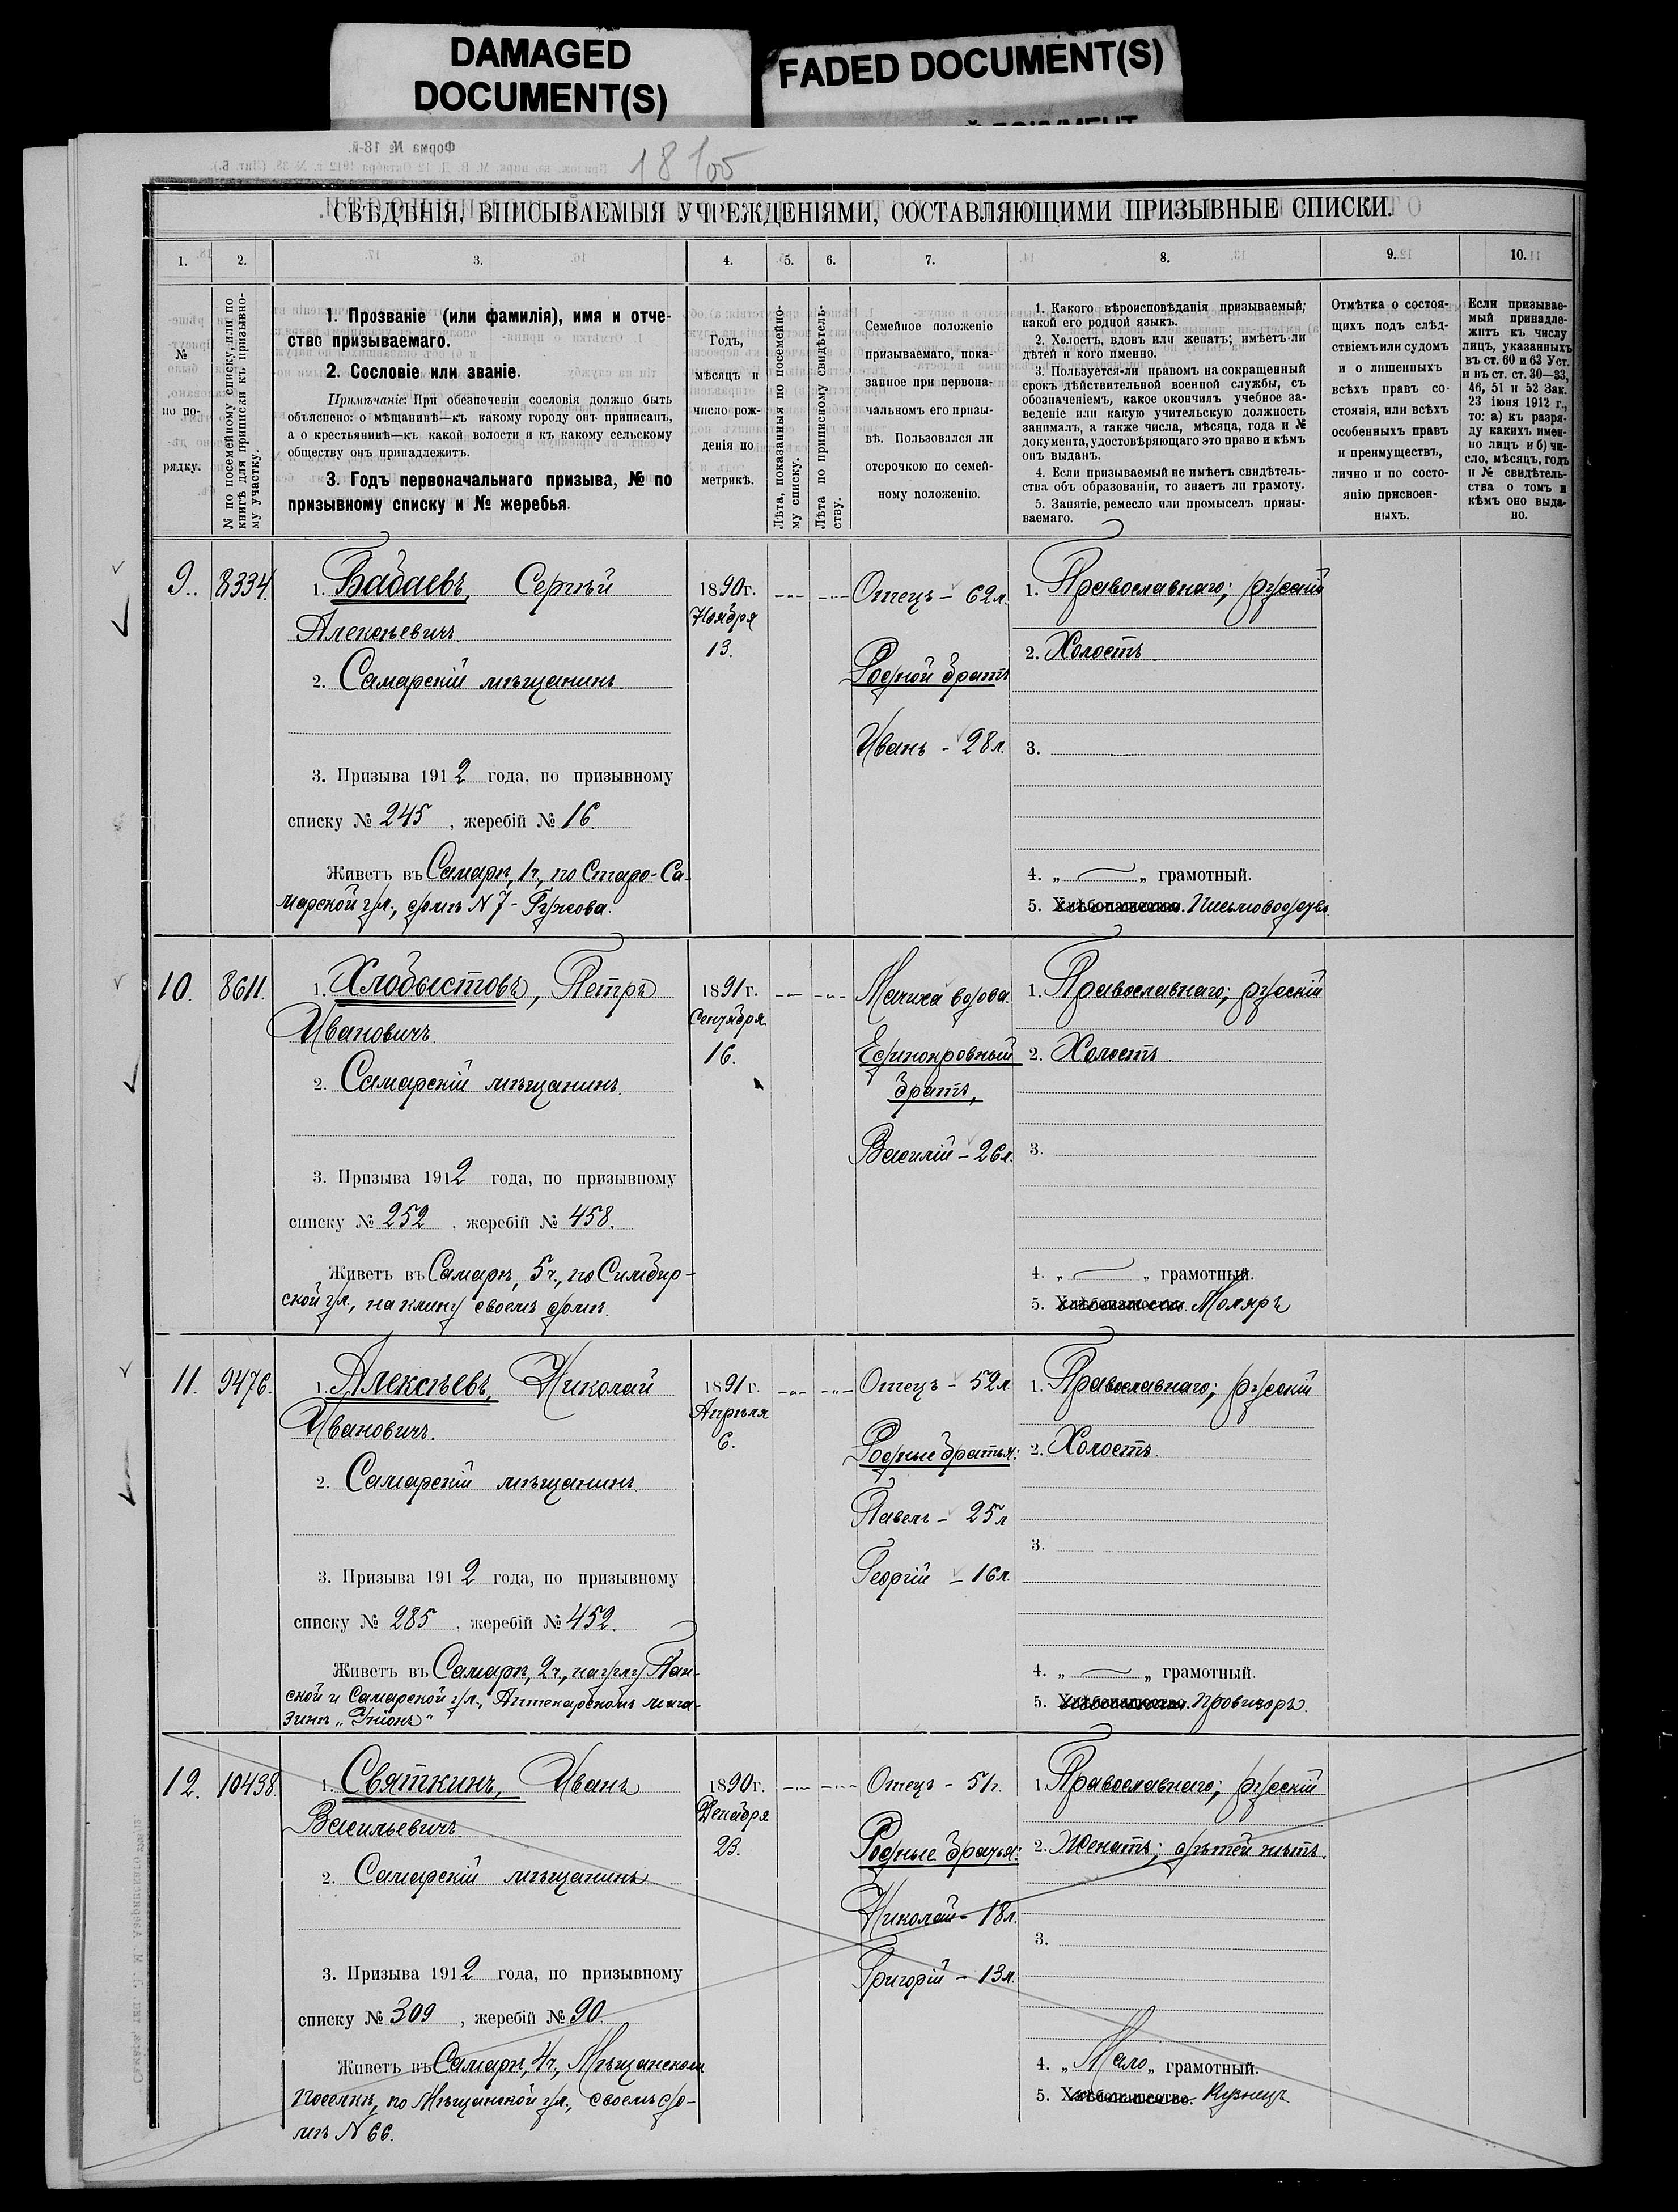 DAMAGED
DOCUMENT(S)
FADED DOCUMENT(S)
Форма № 18-й.
18
СВѢДѢНІЯ, ВПИСЫВАЕМЫЯ УЧРЕЖДЕНІЯМИ, СОСТАВЛЯЮЩИМИ ПРИЗЫВНЫЕ СПИСКИ.
1. 2. 3. 4. 5. 6. 7. 8. 9. 10.
№
по по-
рядку.
№ по посемейному списку, или по
книгѣ для приписки къ призывно-
му участку.
1. Прозваніе (или фамилія), имя и отче-
ство призываемаго.
2. Сословіе или званіе.
Примѣчаніе: При обезпеченіи сословія должно быть
объяснено: о мѣщанинѣ—къ какому городу онъ приписанъ,
а о крестьянинѣ—къ какой волости и къ какому сельскому
обществу онъ принадлежитъ.
3. Годъ первоначальнаго призыва, № по
призывному списку и № жеребья.
Годъ,
мѣсяцъ и
число рож-
денія по
метрикѣ.
Лѣта, показанныя по посемейно-
му списку.
Лѣта по приписному свидѣтель-
ству.
Семейное положеніе
призываемаго, пока-
занное при первона-
чальномъ его призы-
вѣ. Пользовался ли
отсрочкою по семей-
ному положенію.
1. Какого вѣроисповѣданія призываемый;
какой его родной языкъ.
2. Холостъ, вдовъ или женатъ; имѣетъ-ли
дѣтей и кого именно.
3. Пользуется-ли правомъ на сокращенный
срокъ дѣйствительной военной службы, съ
обозначеніемъ, какое окончилъ учебное за-
веденіе или какую учительскую должность
занималъ, а также числа, мѣсяца, года и №
документа, удостовѣряющаго это право и кѣмъ
онъ выданъ.
4. Если призываемый не имѣетъ свидѣтель-
ства объ образованіи, то знаетъ ли грамоту.
5. Занятіе, ремесло или промыселъ призы-
ваемаго.
Отмѣтка о состоя-
щихъ подъ слѣд-
ствіемъ или судомъ
и о лишенныхъ
всѣхъ правъ со-
стоянія, или всѣхъ
особенныхъ правъ
и преимуществъ,
лично и по состо-
янію присвоен-
ныхъ.
Если призывае-
мый принадле-
житъ къ числу
лицъ, указанныхъ
въ ст. 60 и 63 Уст.
и въ ст. ст. 30—33,
46, 51 и 52 Зак.
23 іюня 1912 г.,
то: а) къ разря-
ду какихъ имен-
но лицъ и б) чи-
сло, мѣсяцъ, годъ
и № свидѣтель-
ства о томъ и
кѣмъ оно выда-
но.
9. 8334. 1. Бабаевъ, Сергѣй
Алексѣевичъ.
2. Самарскій мѣщанинъ.
3. Призыва 1912 года, по призывному
списку № 245, жеребій № 16.
Живетъ въ Самарѣ, 1ч., по Старо-Са-
марской ул., домъ № 7-
1890г.
Ноября
13.
Отецъ - 62л.
Родной братъ
Иванъ - 28л.
1. Православнаго; русскій
2. Холостъ
3.
4. „ „ грамотный.
5. Хлѣбопашество. Письмоводство
10. 8611. 1. Хлобыстовъ, Петръ
Ивановичъ.
2. Самарскій мѣщанинъ.
3. Призыва 1912 года, по призывному
списку № 252, жеребій № 458.
Живетъ въ Самарѣ, 5ч., по Симбир-
ской ул., на клину своемъ домѣ.
1891г.
Сентября
16.
Мачиха вдова.
Единокровный
братъ,
Василій - 26л.
1. Православнаго; русскій
2. Холостъ
3.
4. „ „ грамотный.
5. Хлѣбопашество. Моляръ
11. 9476. 1. Алексѣевъ, Николай
Ивановичъ.
2. Самарскій мѣщанинъ.
3. Призыва 1912 года, по призывному
списку № 285, жеребій № 452.
Живетъ въ Самарѣ, 2ч., на углу Пан-
ской и Самарской ул., Аптекарскомъ мага-
зинѣ „Уніонъ“
1891г.
Апрѣля
6.
Отецъ - 52л.
Родные братья:
Павелъ - 25л
Георгій - 16л.
1. Православнаго; русскій
2. Холостъ.
3.
4. „ „ грамотный.
5. Хлѣбопашество. Провизоръ.
12. 10438. 1. Святкинъ, Иванъ
Васильевичъ.
2. Самарскій мѣщанинъ
3. Призыва 1912 года, по призывному
списку № 309, жеребій № 90.
Живетъ въ Самарѣ, 4ч., Мѣщанскомъ
поселкѣ, по Мѣщанской ул., своемъ до-
мѣ № 66.
1890г.
Декабря
23.
Отецъ - 51г.
Родные братья:
Николай - 18л.
Григорій - 13л.
1. Православнаго; русскій
2. Женатъ; дѣтей нѣтъ.
3.
4. „Мало„ грамотный.
5. Хлѣбопашество. Кузнецъ